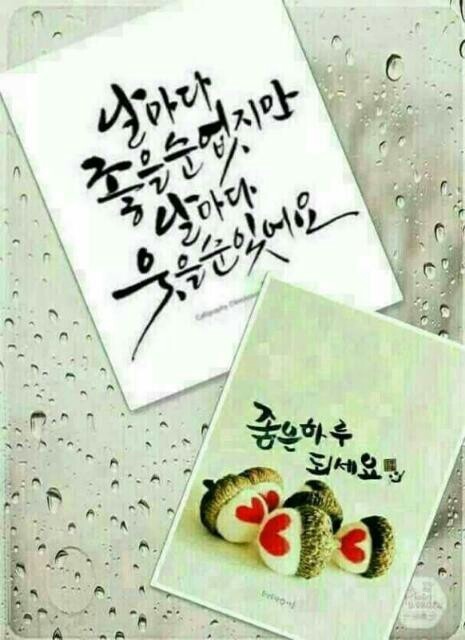 날마다
좋을순없지만
날마다
웃을순있어요
Calligraphy
좋은하루
되세요